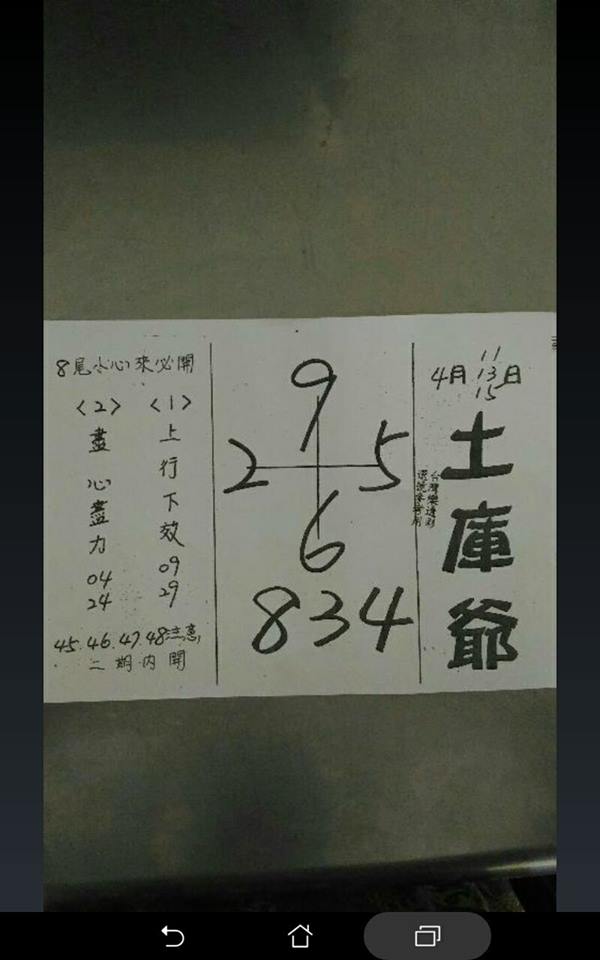 4月 11 13 15日
土庫爺
9
2 5
6
834
8尾小心來必開
〈1〉
上行下效
09
29
〈2〉
盡心盡力
04
24
45.46.47.48注意
二期内開